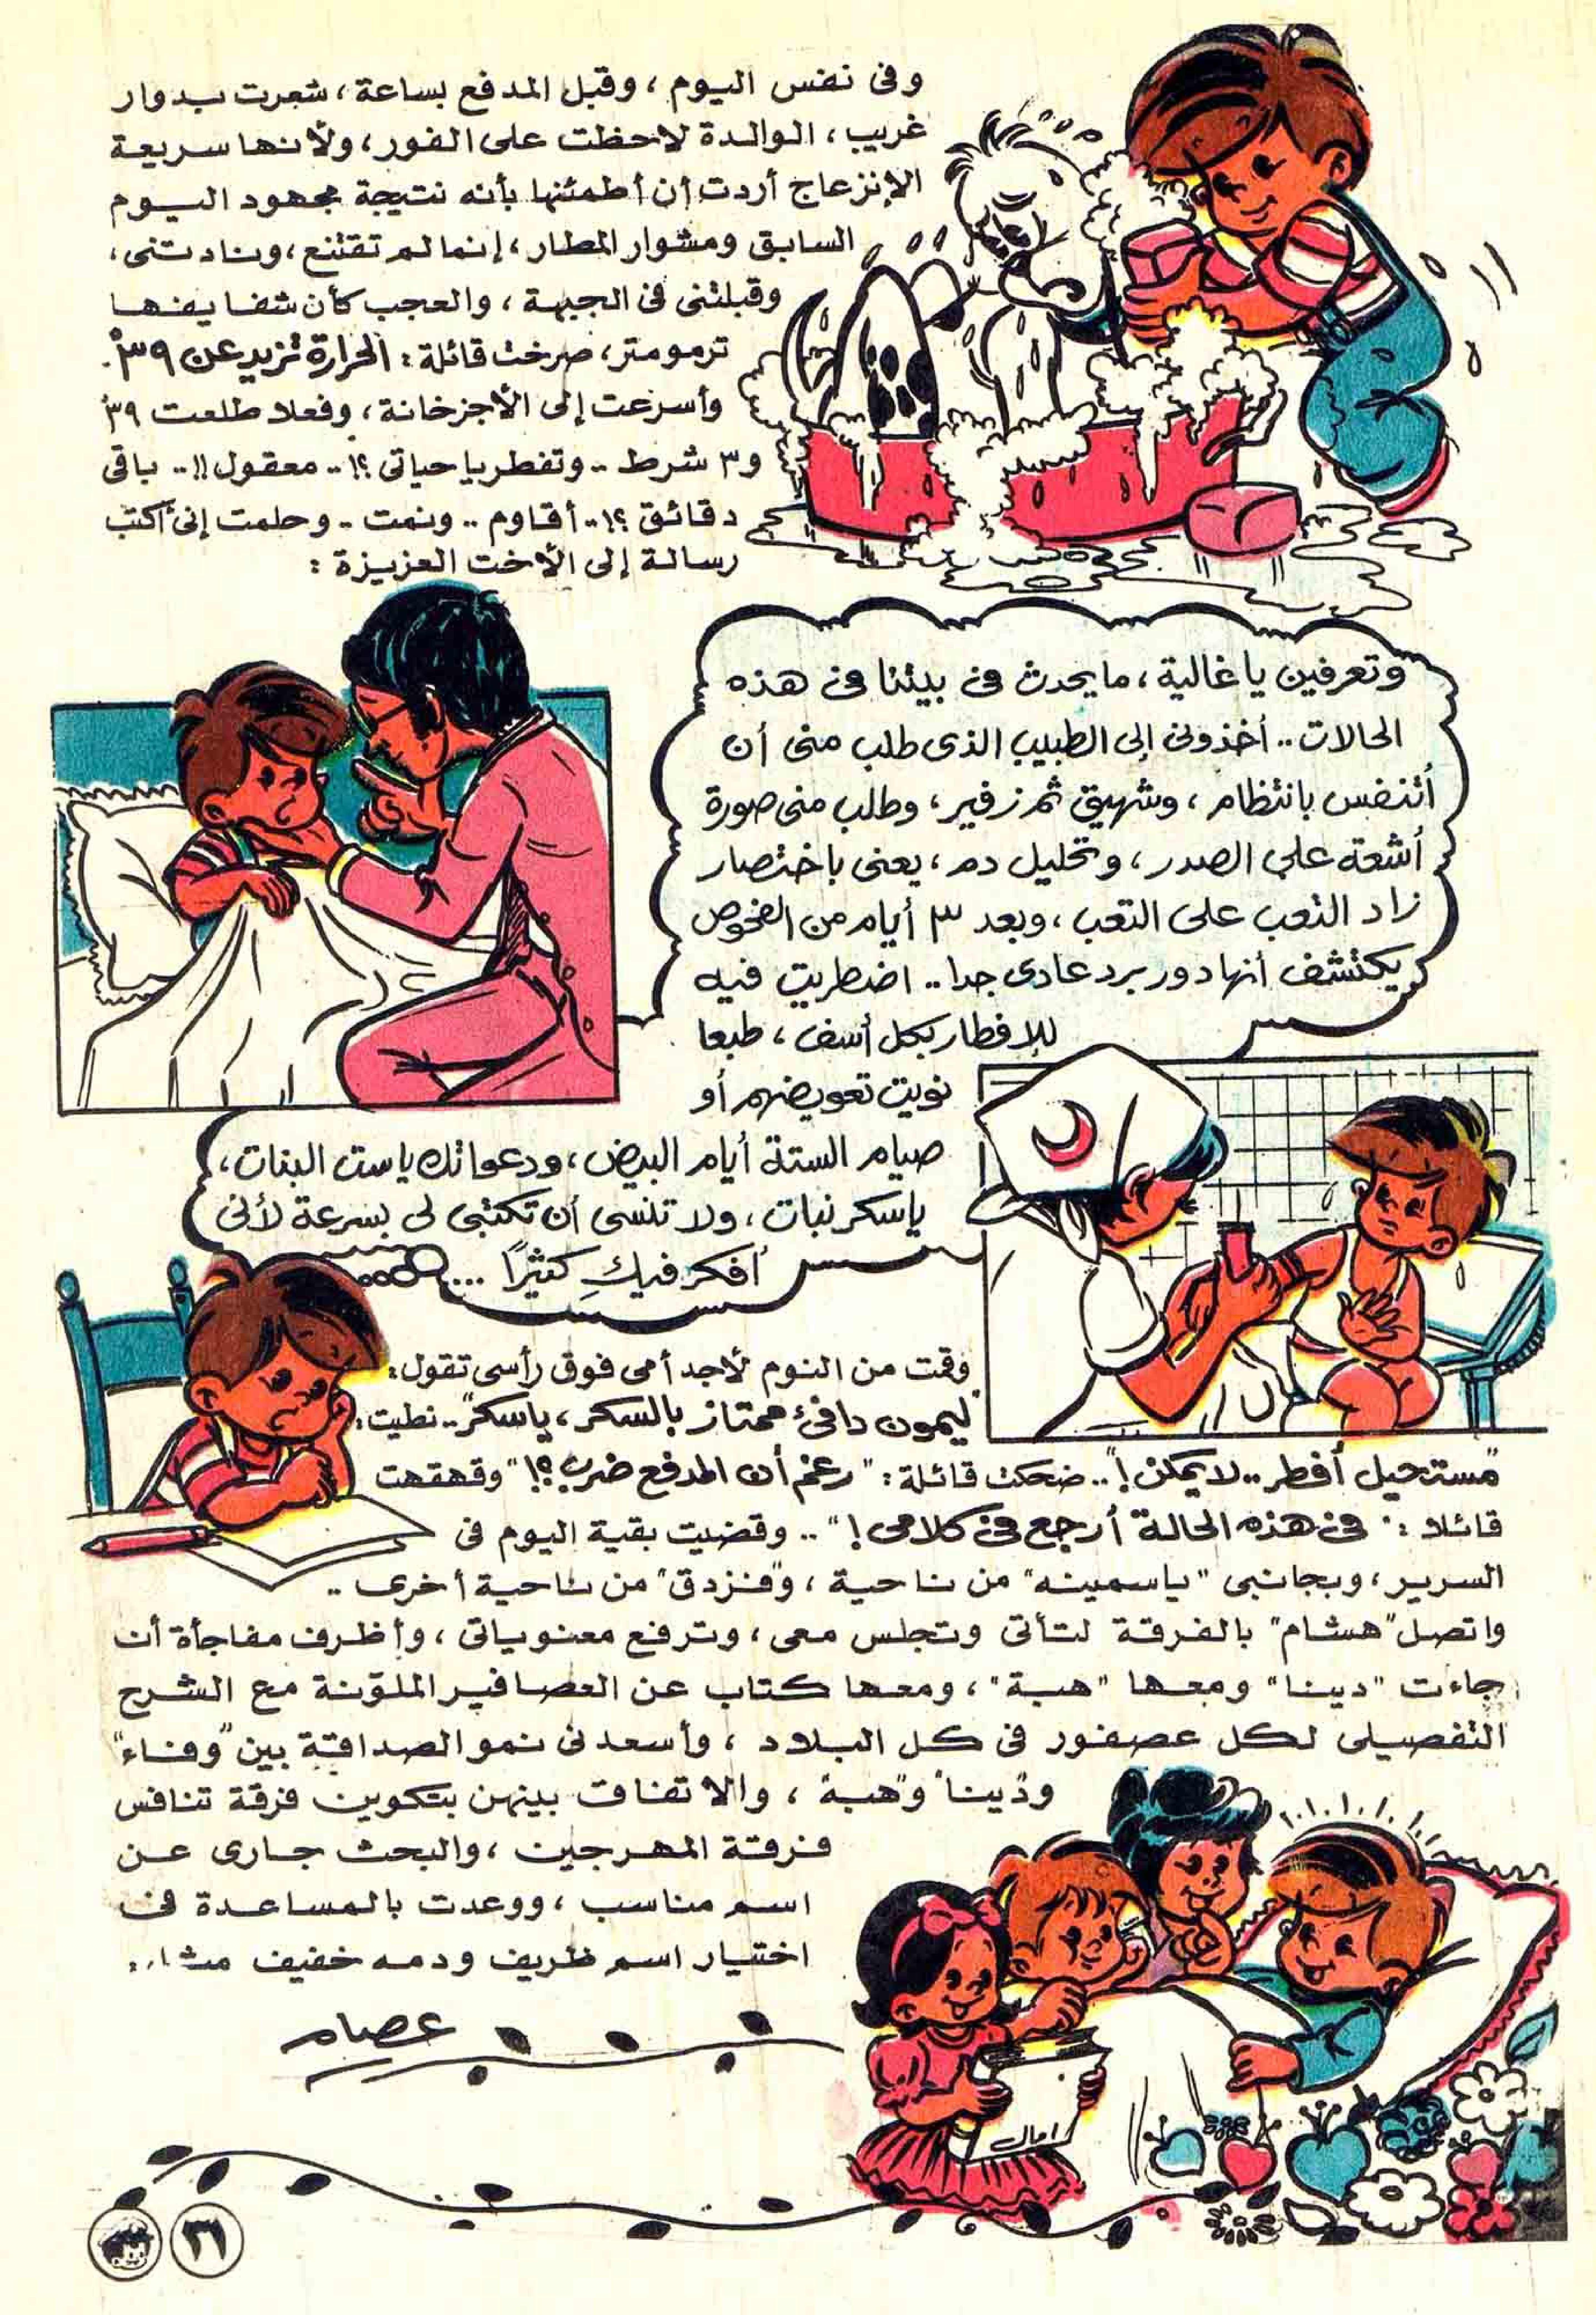 وفى نفس اليوم ، وقبل المدفع بساعة ، شعرت بدوار
غريب ، الوالدة لاحظت على الفور ، ولأنها سريعة
الإنزعاج أردت أن أطمئنها بأنه نتيجة مجهود اليوم
السابق ومشوار المطار ، إنما لم تقتنع ، ونادتنى ،
وقبلتنى فى الجبهة ، والعجب كأن شفايفها
ترمومتر ، صرخت قائلة : الحرارة تزيد عن ٣٩ْ .
وأسرعت إلى الأجزخانة ، وفعلا طلعت ٣٩ْ
و٣ شرط .. وتفطر يا حياتى ؟! .. معقول !! .. باقى
دقائق ؟! .. أقاوم .. ونمت .. وحلمت إنى أكتب
رسالة إلى الأخت العزيزة :
وتعرفين يا غالية ، ما يحدث فى بيتنا فى هذه
الحالات .. أخذونى إلى الطبيب الذى طلب منى أن
أتنفس بانتظام ، وشهيق ثم زفير ، وطلب منى صورة
أشعة على الصدر ، وتحليل دم ، يعنى باختصار
زاد التعب على التعب ، وبعد ٣ أيام من الفحوص
يكتشف أنها دور برد عادى جدا .. اضطريت فيه
للإفطار بكل أسف ، طبعا
نويت تعويضهم أو
صيام الستة أيام البيض ، ودعواتك يا ست البنات ،
يا سكر نبات ، ولا تنسى أن تكتبى لى بسرعة لأنى
أفكر فيكِ كثيرًا ...
وقمت من النوم لأجد أمى فوق رأسى تقول :
"ليمون دافئ ممتاز بالسكر ، يا سكر" .. نطيت :
"مستحيل أفطر .. لا يمكن !" .. ضحكت قائلة : "رغم أن المدفع ضرب ؟!" وقهقهت
قائلا : "فى هذه الحالة أرجع فى كلامى !" .. وقضيت بقية اليوم فى
السرير ، وبجانبى "ياسمينه" من ناحية ، و"فنزدق" من ناحية أخرى ..
واتصل "هشام" بالفرقة لتأتى وتجلس معى ، وترفع معنوياتى ، وأظرف مفاجأة أن
جاءت "دينا" ومعها "هبة" ، ومعها كتاب عن العصافير الملوّنة مع الشرح
التفصيلى لكل عصفور فى كل البلاد ، وأسعدنى نمو الصداقة بين "وفاء"
و"دينا" و"هبة" ، والاتفاق بينهن بتكوين فرقة تنافس
فرقة المهرجين ، والبحث جارى عن
اسم مناسب ، ووعدت بالمساعدة فى
اختيار اسم ظريف ودمه خفيف
عصام
امال
٣١